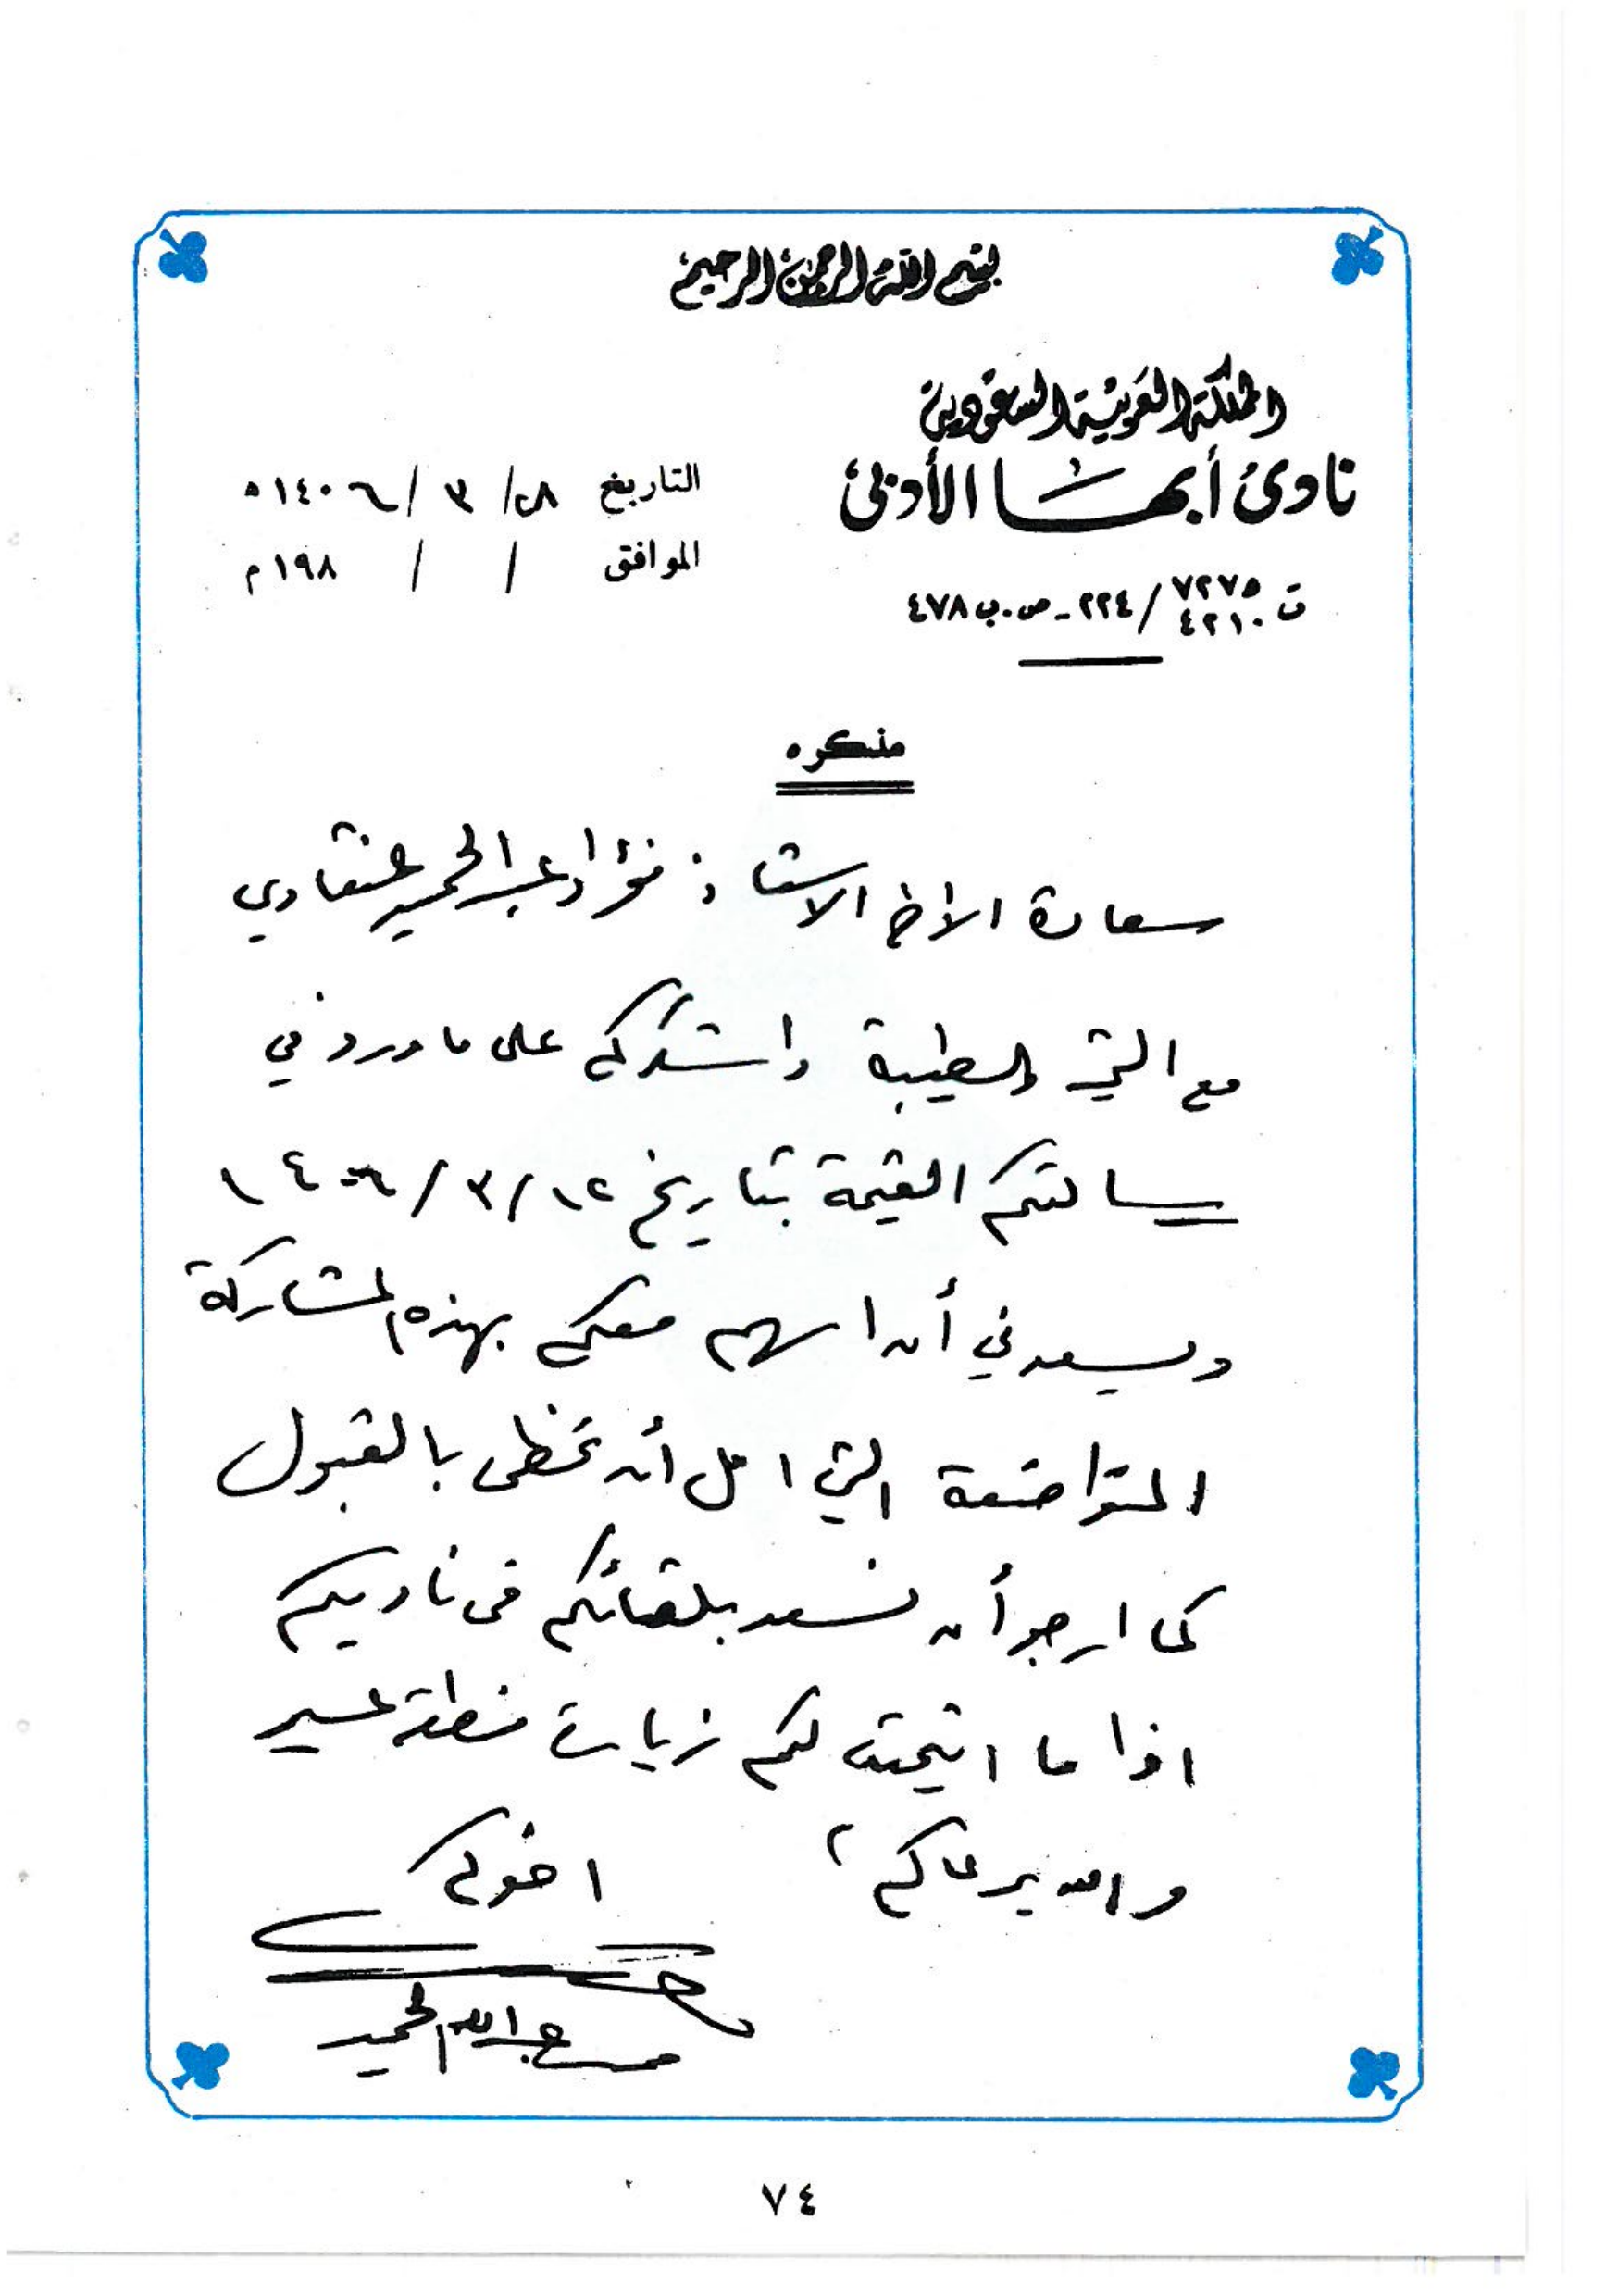 بسم الله الرحمن الرحيم
المملكة العربية السعودية
نادي أبها الأدبي
التاريخ ٢٨/ ٣ /١٤٠٦ ه
الموافق / / ١٩٨ م
ت ٧٢٧٥ / ٢٢٤ - ص.ب ٤٧٨
٤٢١٠
مذكره
سعادة الاخ الاستاذ: فؤاد عبد الحميد عنقاوي
مع التحية الطيبة واشكركم على ما ورد في
رسالتكم القيمة بتاريخ ١٢/ ٣/ ١٤٠٦
ويسعدني أن اسهم معكم بهذه المشاركة
المتواضعة التي امل أن تحظى بالقبول
كما ارجو أن نسعد بلقائكم في ناديكم
اذا ما اتيحت لكم زيارة منطقة عسير
والله يرعاكم ،
اخوكم
عبدالله الحميد
٧٤